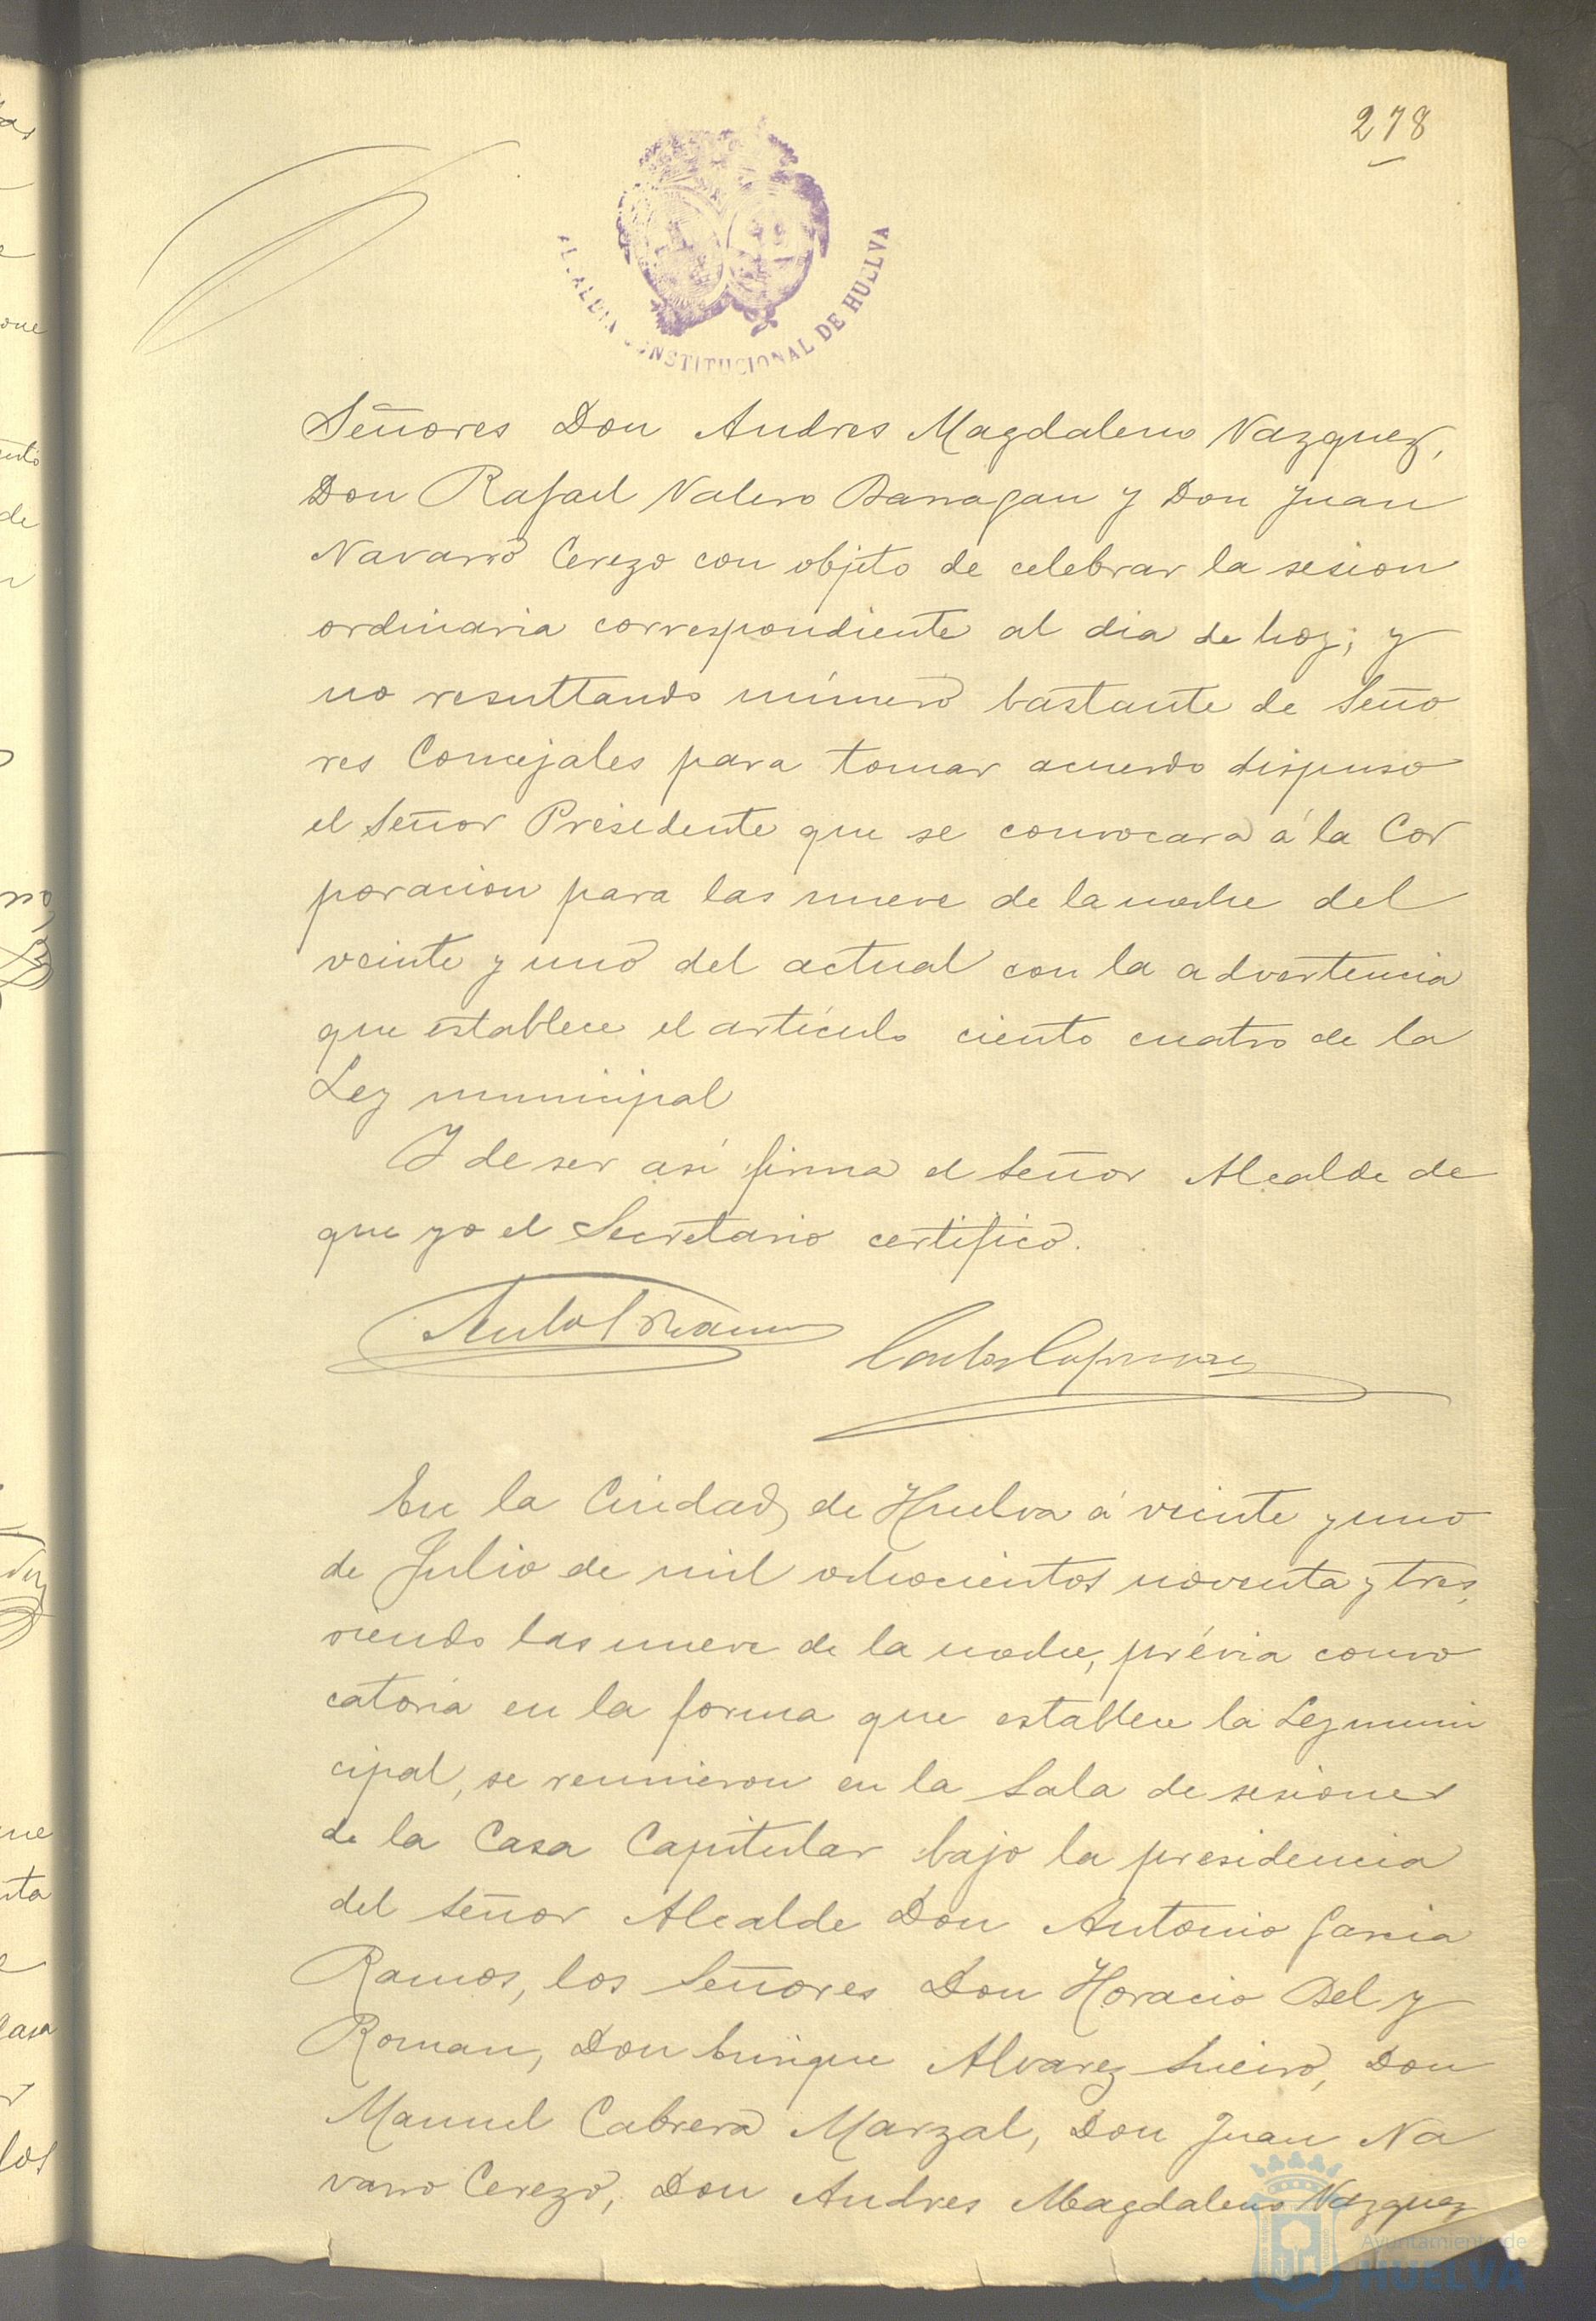 278
ALCALDIA CONSTITUCIONAL DE HUELVA
Señores Don Andres Magdaleno Vazquez,
Don Rafael Valero Barragan y Don Juan
Navarro Cerezo con objeto de celebrar la sesion
ordinaria correspondiente al dia de hoy; y
no resultando número bastante de Seño
res Concejales para tomar acuerdo dispuso
el Señor Presidente que se convocara á la Cor
poracion para las nueve de la noche del
veinte y uno del actual con la advertencia
que establece el artículo ciento cuatro de la
Ley municipal
Y de ser así firma el Señor Alcalde de
que yo el Secretario certifico.
En la Ciudad de Huelva á veinte y uno
de Julio de mil ochocientos noventa y tres,
siendo las nueve de la noche, prévia convo
catoria en la forma que establece la Ley muni
cipal, se reunieron en la Sala de sesiones
de la Casa Capitular bajo la presidencia
del Señor Alcalde Don Antonio Garcia
Ramos, los Señores Don Horacio Bel y
Roman, Don Enrique Alvarez Sueiro, Don
Manuel Cabrera Marzal, Don Juan Na
varro Cerezo, Don Andres Magdaleno Vazquez
Ayuntamiento de
HUELVA